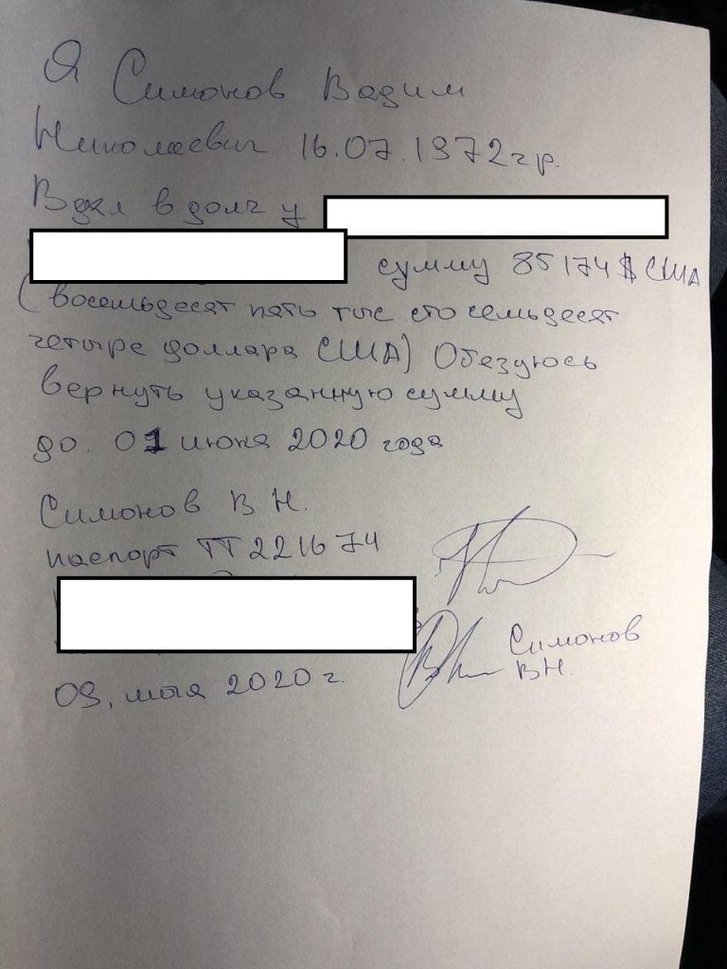 Я Симонов Вадим
Николаевич 16.07.1972 г.р.
Взял в долг у
сумму 85174 $ США
(восемьдесят пять тыс сто семьдесят
четыре доллара США) Обезуюсь
вернуть указанную сумму
до. 01 июня 2020 года
Симонов В Н.
паспорт ТТ 221674
Симонов
В Н.
09, мая 2020 г.